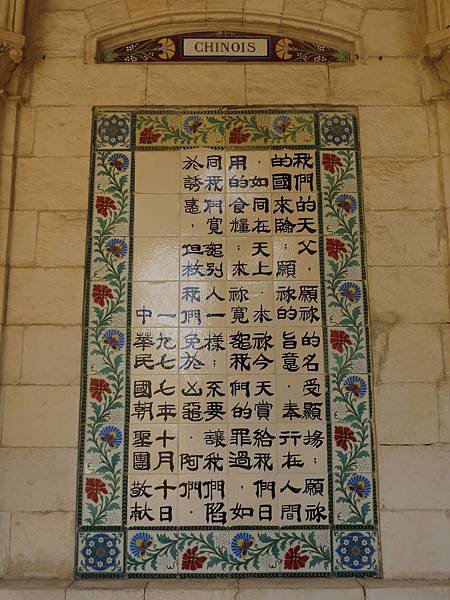 CHINOIS
我們的天父，願祢的名受顯揚；願祢
的國來臨；願祢的旨意，奉行在人間
，如同在天上。求祢今天賞給我們日
用的食糧；求祢寬恕我們的罪過，如
同我們寬恕別人一樣；不要讓我們陷
於誘惑，但救我們免於凶惡。阿們。
一九七七年十月十日
中華民國朝聖團敬獻